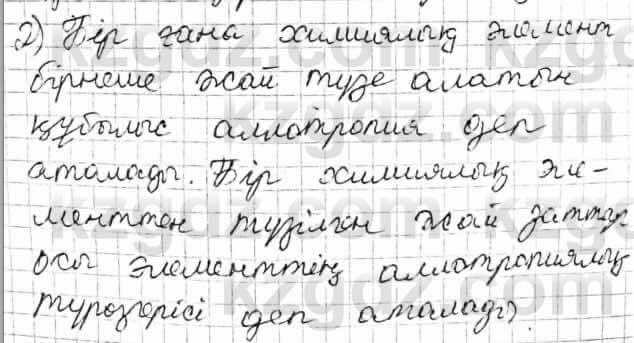 2) Бір ғана химиялық элемент
бірнеше жай түзе алатын
құбылыс аллотропия деп
аталады. Бір химиялық эле-
менттен түзілген жай заттар
осы элементтің аллотропиялық
түрөзгерісі деп аталады.